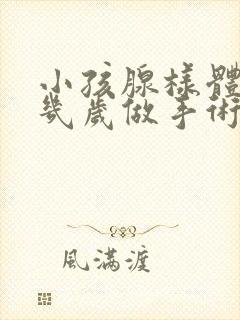 小孩腺樣體
幾歲做手術
風滿渡